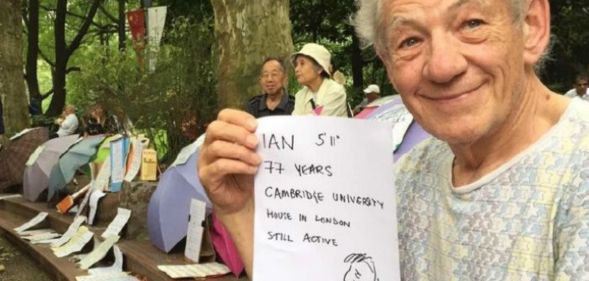 IAN 5'11"
77 YEARS
CAMBRIDGE UNIVERSITY
HOUSE IN LONDON
STILL ACTIVE